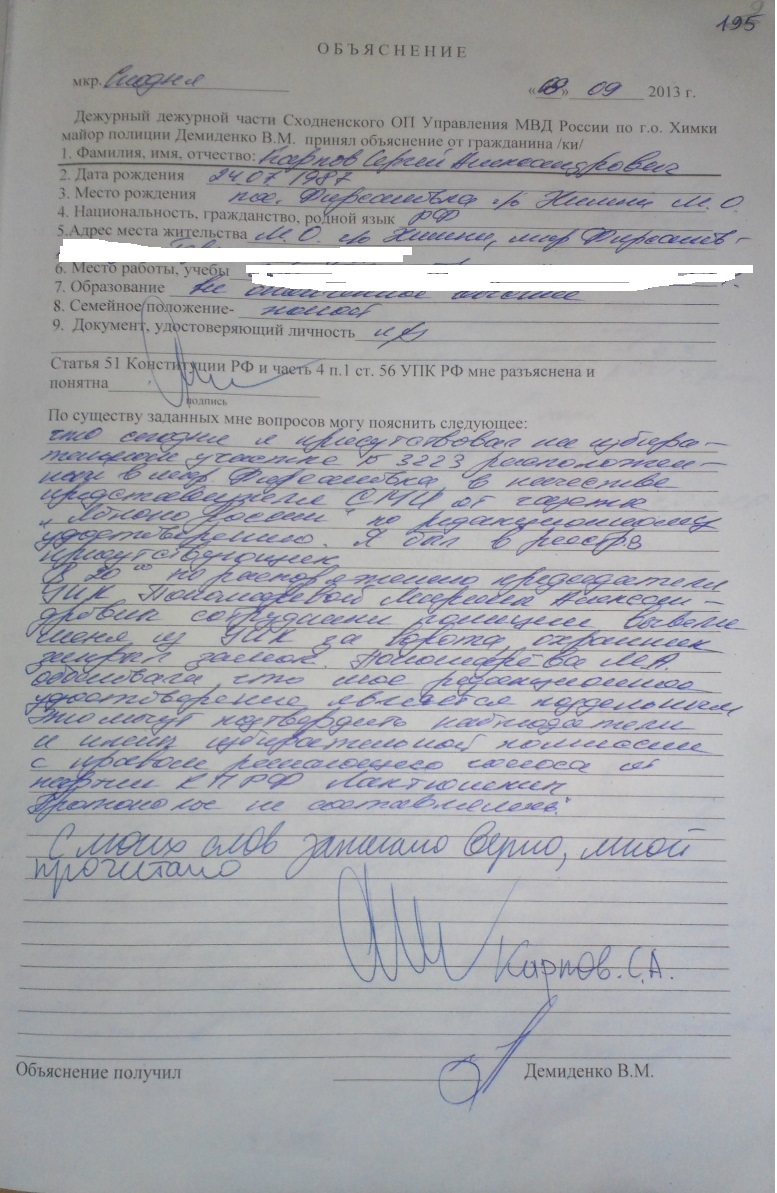 195
ОБЪЯСНЕНИЕ
мкр. Сходня «08» 09 2013 г.
Дежурный дежурной части Сходненского ОП Управления МВД России по г.о. Химки
майор полиции Демиденко В.М. принял объяснение от гражданина /ки/
1. Фамилия, имя, отчество: Карпов Сергей Александрович
2. Дата рождения 24.07.1987
3. Место рождения пос. Фирсановка г/о Химки М.О.
4. Национальность, гражданство, родной язык РФ
5.Адрес места жительства М.О. г/о Химки, мкр Фирсанов-
6. Место работы, учебы
7. Образование не оконченное высшее
8. Семейное положение- холост
9. Документ, удостоверяющий личность
Статья 51 Конституции РФ и часть 4 п.1 ст. 56 УПК РФ мне разъяснена и
понятна
подпись
По существу заданных мне вопросов могу пояснить следующее:
что сегодня я присутствовал на избира-
тельном участке № 3223 расположен-
ном в мкр. Фирсановка в качестве
представителя СМИ от газеты
"Яблоко России" по редакционному
удостоверению. Я был в реестре
присутствующих
В 20 00 по распоряжению председателя
УИК Пономаревой Марины Александ-
ровны сотрудники полиции вывели
меня из УИК за ворота охранник
закрыл замок. Пономарёва М.А.
объявила, что мое редакционное
удостоверение является поддельным
Это могут подтвердить наблюдатели
и члены избирательной комиссии
с правом решающего голоса от
партии КПРФ Лактюшкин
Протоколы не составлялись.
С моих слов записано верно, мной
прочитано
Карпов. С.А.
Объяснение получил Демиденко В.М.